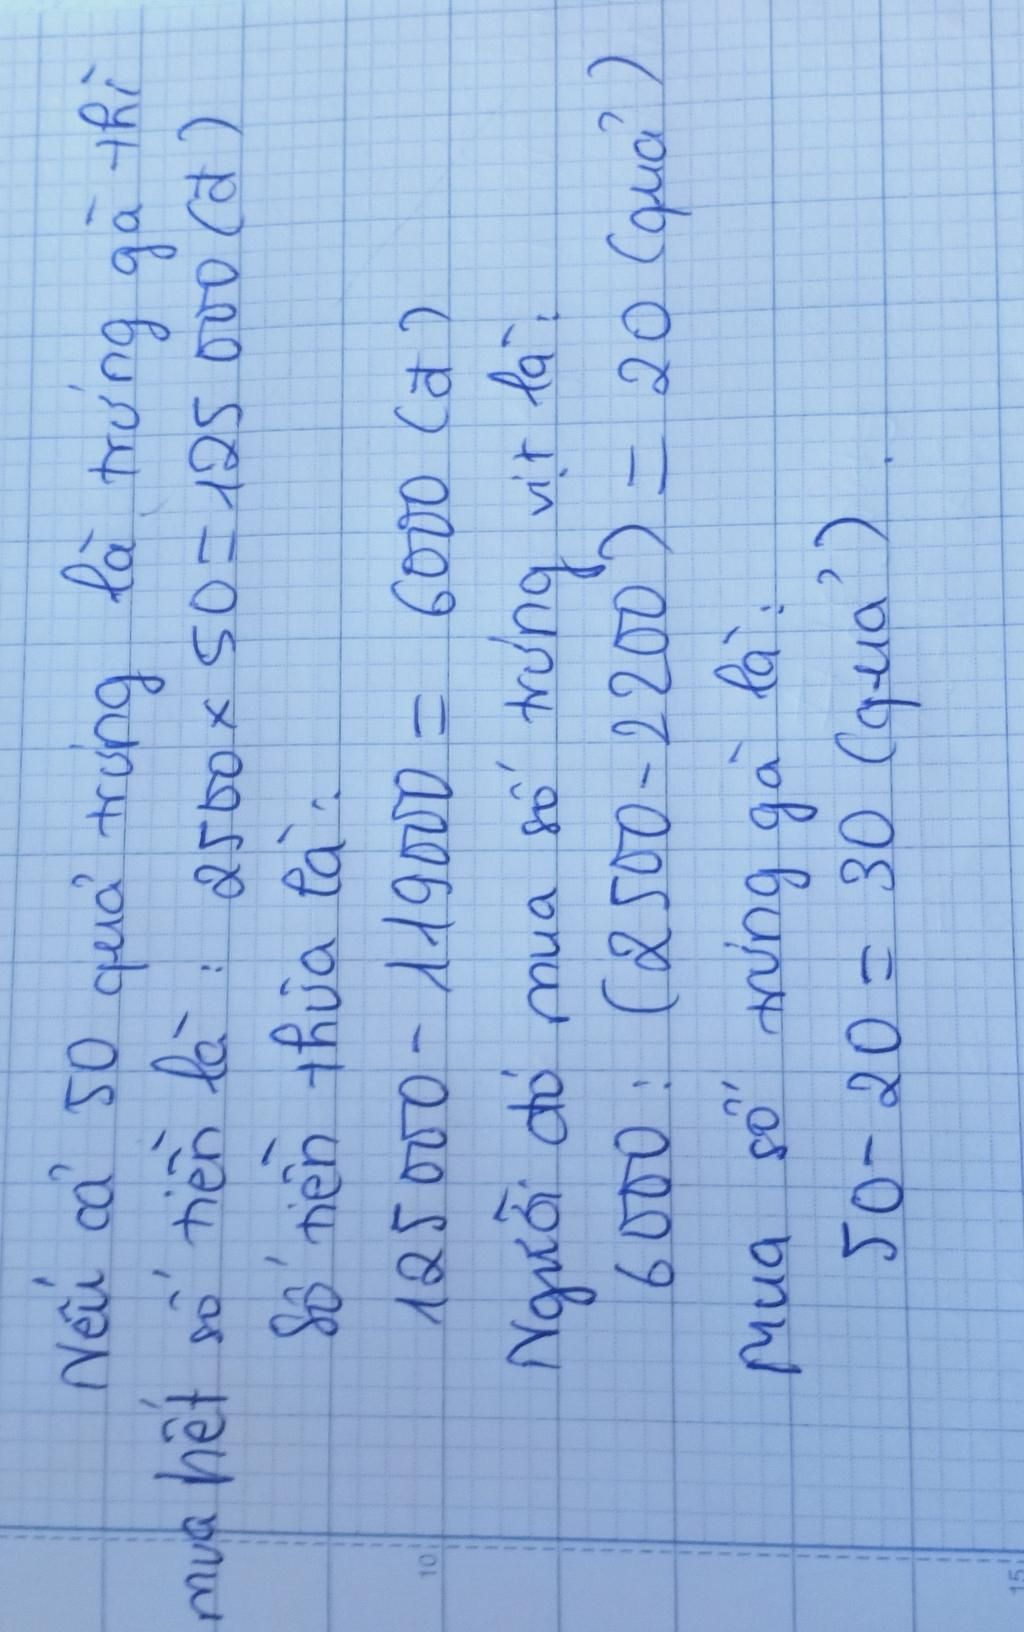 Nếu cả 50 quả trứng là trứng gà thì
mua hết số tiền là : 2500 x 50 = 125 000 (đ)
Số tiền thừa là :
125 000 - 119000 = 6000 (đ)
Người đó mua số trứng vịt là :
6000 : (2500 - 2200) = 20 (quả)
Mua số trứng gà là :
50 - 20 = 30 (quả) .
10
15